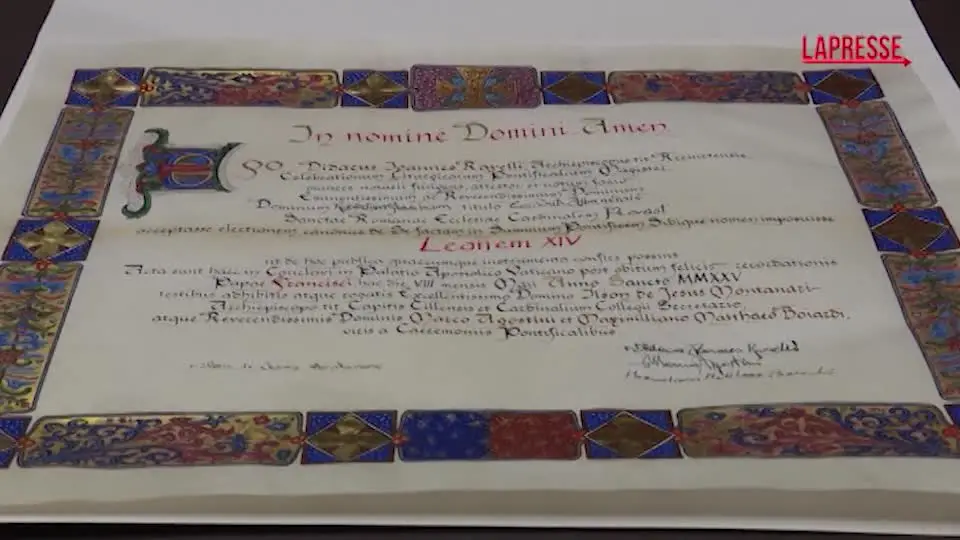 LAPRESSE
In nomine Domini Amen
EGO Didacus Ioannes Ravelli, Archiepiscopus tit. Recinetensis
Celebrationum Liturgicarum Pontificalium Magister
munere notarii fungens, attestor et notum facio
Eminentissimum ac Reverendissimum Dominum
Dominum titulo
Sanctae Romanae Ecclesiae Cardinalem Prevost
acceptasse electionem canonice de Se factam in Summum Pontificem Sibique nomen imposuisse
Leonem XIV
ut de hoc publica quaecumque instrumenta confici possint
Acta sunt haec in Conclavi in Palatio Apostolico Vaticano post obitum felicis recordationis
Papae Francisci hac die VIII mensis Maii Anno Sancto MMXXV
testibus adhibitis atque rogatis Excellentissimo Domino Ilson de Jesus Montanari
Archiepiscopo tit. Capitis Cillensis et Cardinalium Collegii Secretario,
atque Reverendissimis Dominis Marco Agostini et Maximiliano Matthaeo Boiardi,
viris a Caeremoniis Pontificalibus